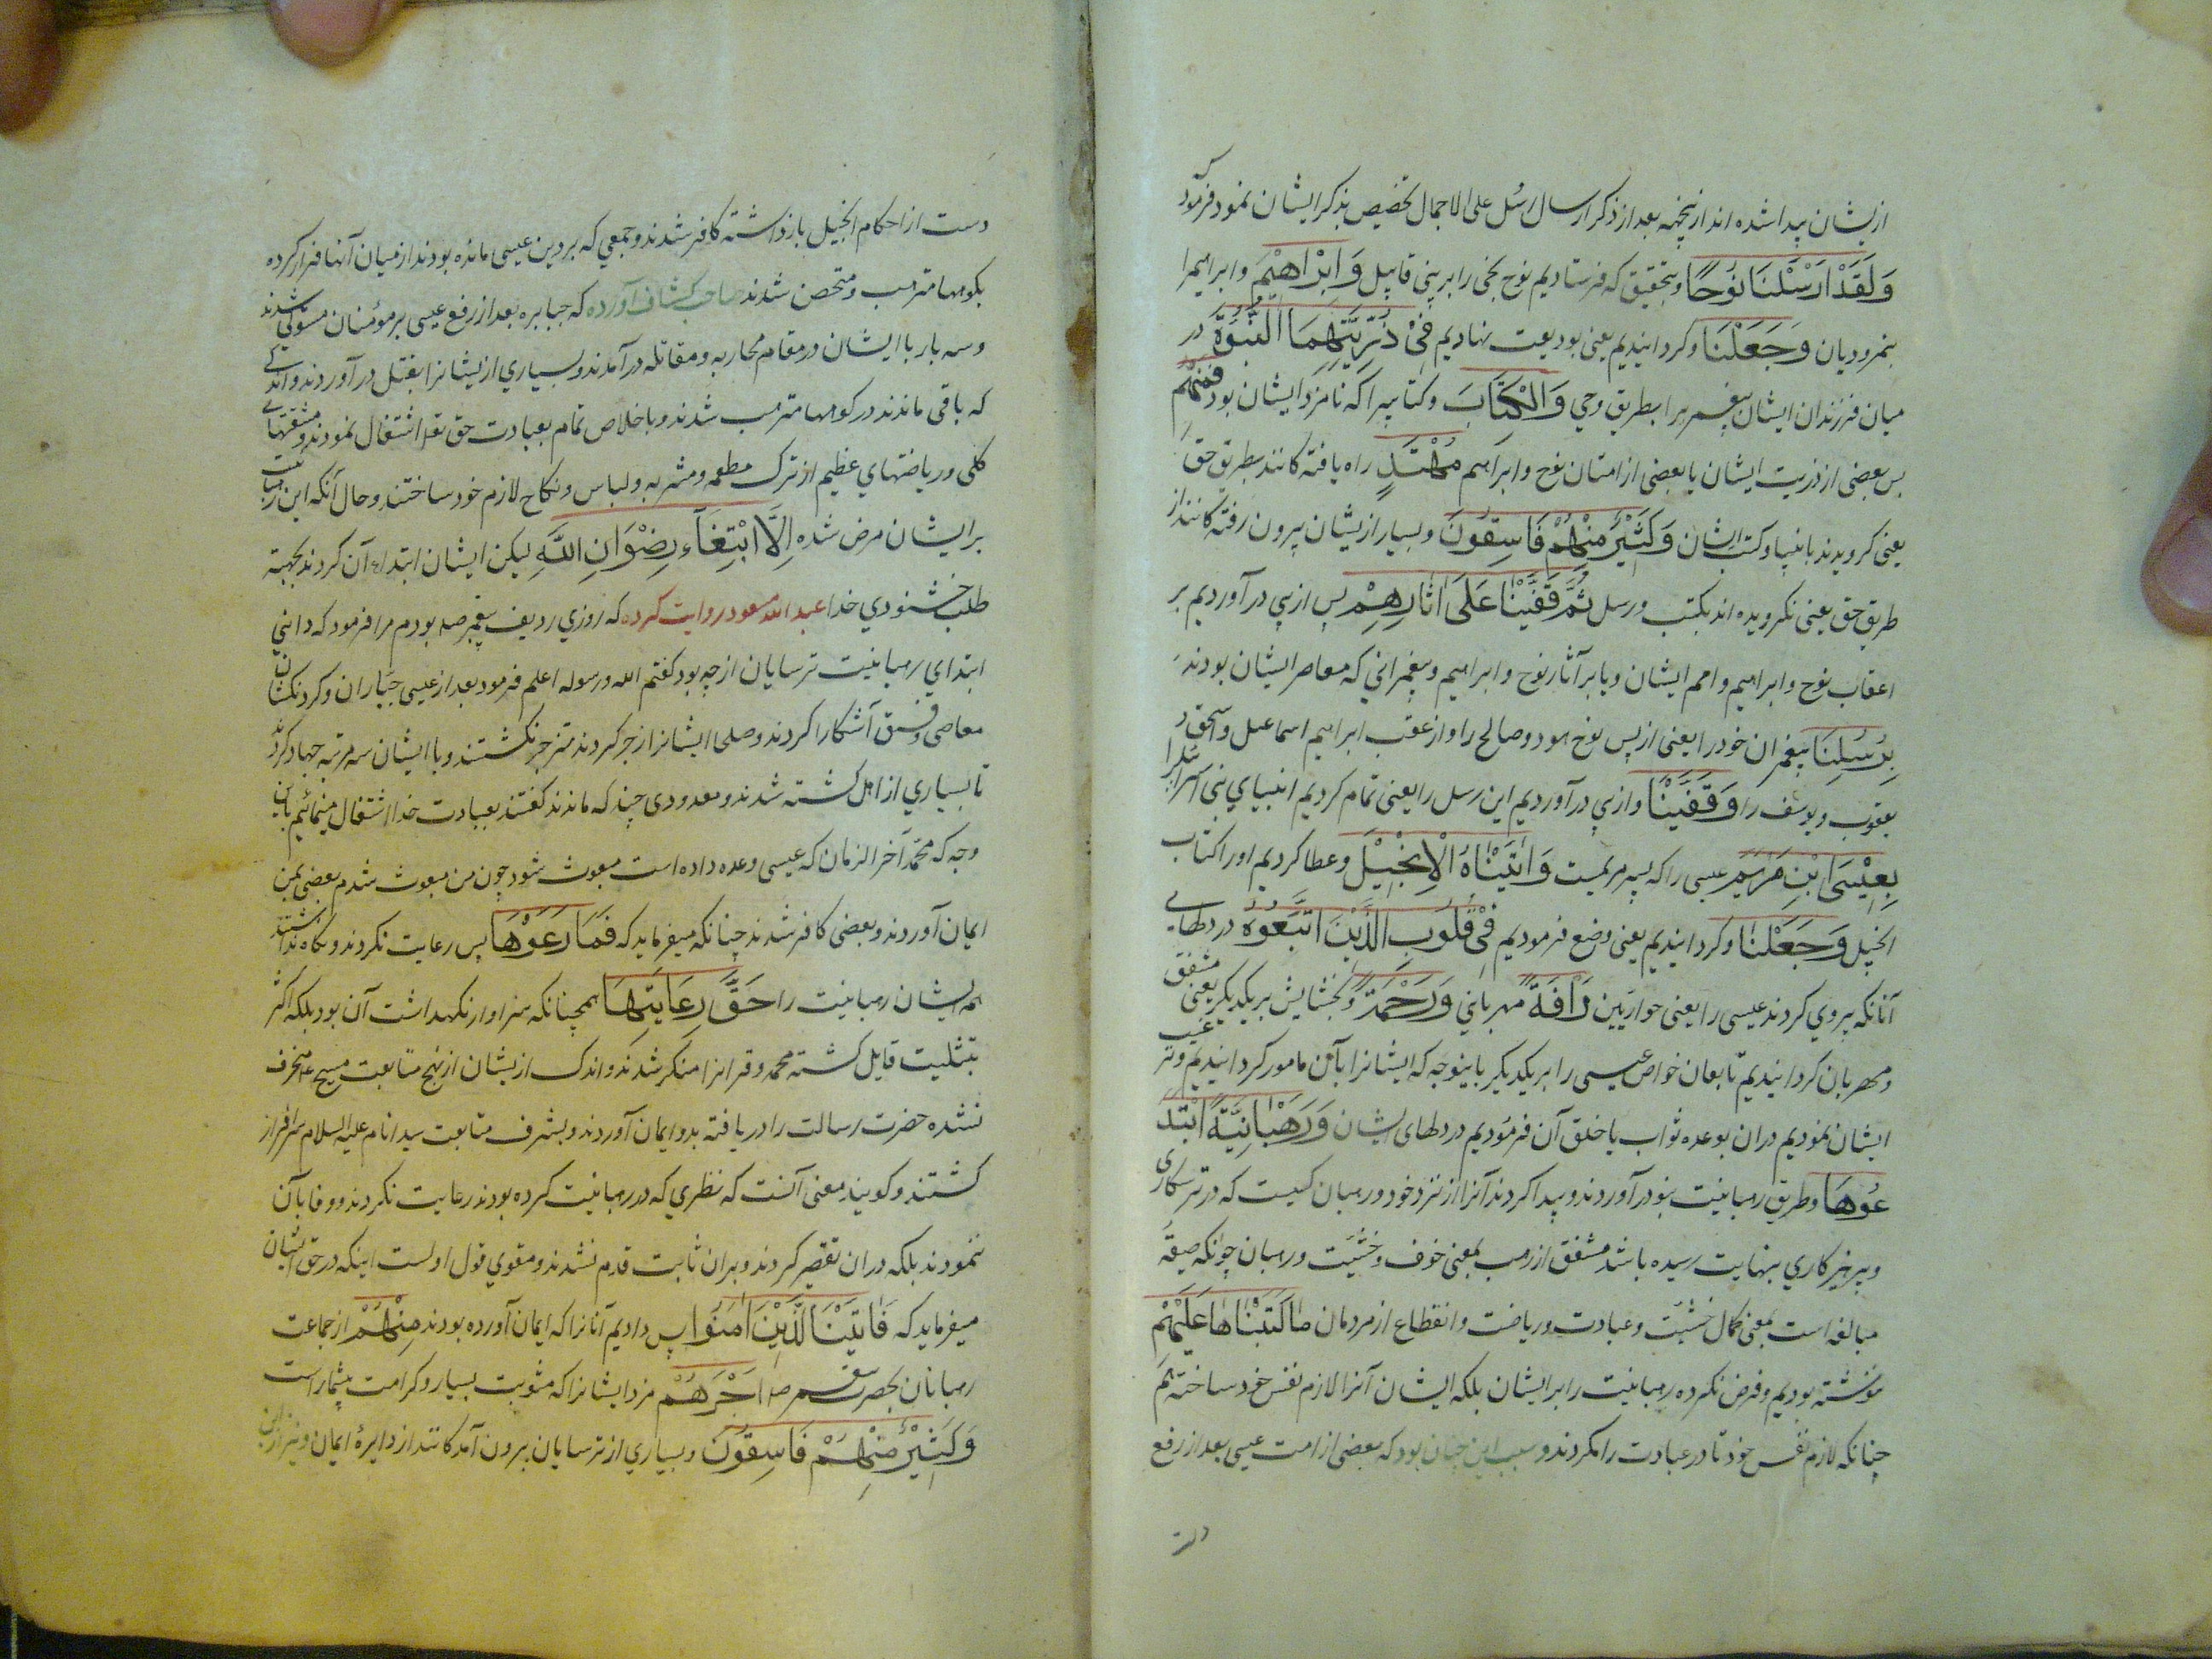 ازیشان پیدا شده اند ازینجهه بعد از ذکر ارسال رسل علی الاجمال تخصیص بذکر ایشان نمود فرمود
وَلَقَدْ اَرْسَلْنَا نُوحًا و بتحقیق که فرستادیم نوح نجی را بر بنی قابیل وَاِبْرَاهِیْمَ و ابراهیمرا
بنمرودیان وَجَعَلْنَا و گردانیدیم یعنی بودیعت نهادیم فِیْ ذُرِّیَّتِهِمَا النُّبُوَّةَ در
میان فرزندان ایشان پیغمبریرا بطریق وحی وَالْکِتَابَ و کتابیرا که نامزد ایشان بود فَمِنْهُمْ
پس بعضی از ذریت ایشان یا بعضی از امتان نوح و ابراهیم مُهْتَدٍ راه یافته کانند بطریق حق
یعنی کرویدند بانبیا و کتب ایشان وَکَثِیْرٌ مِنْهُمْ فَاسِقُوْنَ و بسیار ازیشان بیرون رفته کانند از
طریق حق یعنی نکرویده اند بکتب و رسل ثُمَّ قَفَّیْنَا عَلَی اٰثَارِهِمْ پس از پی درآوردیم بر
اعقاب نوح و ابراهیم و امم ایشان و یا بر آثار نوح و ابراهیم و پیغمبرانی که معاصر ایشان بودند
بِرُسُلِنَا پیغمبران خود را یعنی از پس نوح هود و صالح را و از عقب ابراهیم اسماعیل و اسحق و
یعقوب و یوسف را وَقَفَّیْنَا و از پی درآوردیم این رسل را یعنی تمام کردیم انبیای بنی اسرائیلرا
بِعِیْسَی ابْنِ مَرْیَمَ عیسی را که پسر مریمست وَاٰتَیْنَاهُ الْاِنْجِیْلَ و عطا کردیم او را کتاب
انجیل وَجَعَلْنَا و گردانیدیم یعنی وضع فرمودیم فِیْ قُلُوْبِ الَّذِیْنَ اتَّبَعُوْهُ در دلهای
آنانکه پیروی کردند عیسی را یعنی حواریین رَاْفَةً مهربانی وَرَحْمَةً و بخشایش بر یکدیگر یعنی مشفق
و مهربان گردانیدیم تابعان خواص عیسی را بر یکدیگر باینوجه که ایشانرا بآن مامور گردانیدیم و ترغیب
ایشان نمودیم دران بوعده ثواب یا خلق آن فرمودیم در دلهای ایشان وَرَهْبَانِیَّةً ابْتَدَ
عُوْهَا و طریق رهبانیت بنو درآوردند و پیدا کردند آنرا از نزد خود و رهبان کسیست که در ترسکاری
و پرهیزکاری بنهایت رسیده باشد مشفق از رهب بمعنی خوف و خشیت و رهبان چونکه صیغه
مبالغه است بمعنی کمال خشیت و عبادت و ریاضت و انقطاع از مردمان مَا کَتَبْنَاهَا عَلَیْهِمْ
نوشته بودیم و فرض نکرده رهبانیت را بر ایشان بلکه ایشان آنرا لازم نفس خود ساخته هم
چنانکه لازم نفس خود نادر عبادت را مکردند و سبب این چنان بود که بعضی از امت عیسی بعد از رفع
دست از احکام انجیل باز داشته کافر شدند و جمعی که بر دین عیسی مانده بودند از میان آنها فرار کرده
بکوهها مترهب و متحصن شدند صاحب کشاف آورده که جبابره بعد از رفع عیسی بر مؤمنان مستولی شدند
و سه بار با ایشان در مقام محاربه و مقاتله درآمدند و بسیاری ازیشانرا بقتل درآوردند و اندکی
که باقی ماندند در کوهها مترهب شدند و باخلاص تمام بعبادت حق تعالی اشتغال نمودند و مشقتهای
کلی و ریاضتهای عظیم از ترک مطعمه و مشربه و لباس و نکاح لازم خود ساختند و حال آنکه این رهبانیت
بر ایشان فرض شده اِلَّا ابْتِغَآءَ رِضْوَانِ اللّٰهِ لیکن ایشان ابتداء آن کردند بجهة
طلب خشنودی خدا عبد الله مسعود روایت کرده که روزی ردیف پیغمبر صلم بودم مرا فرمود که دانی
ابتدای رهبانیت ترسایان از چه بود گفتم الله و رسوله اعلم فرمود بعد از عیسی جباران و گردنکشان
معاصی و فسق آشکارا کردند و صلحا ایشانرا زجر کردند منزجر نگشتند و با ایشان سه مرتبه جهاد کردند
تا بسیاری از اهل کشته شدند و معدودی چند که ماندند گفتند بعبادت خدا اشتغال مینمائیم باین
وجه که محمد آخر الزمان که عیسی وعده داده است مبعوث شود چون من مبعوث شدم بعضی بمن
ایمان آوردند و بعضی کافر شدند چنانکه میفرماید که فَمَا رَعَوْهَا پس رعایت نکردند و نگاه نداشتند
همه ایشان رهبانیت را حَقَّ رِعَایَتِهَا همچنانکه سزاوار نگهداشت آن بود بلکه اکثر
بتثلیث قایل گشته محمد و قرانرا منکر شدند و اندک ازیشان از نهج متابعت مسیح ع منحرف
نشده حضرت رسالت را دریافته بدو ایمان آوردند و بشرف متابعت سید انام علیه السلام سرافراز
گشتند و گویند معنی آنست که نظری که در رهبانیت کرده بودند رعایت نکردند و وفا بآن
ننمودند بلکه دران تقصیر کردند و بران ثابت قدم نشدند و مقوی قول اولست اینکه در حق ایشان
میفرماید که فَاٰتَیْنَا الَّذِیْنَ اٰمَنُوْا پس دادیم آنانرا که ایمان آورده بودند مِنْهُمْ از جماعت
رهبانان بحضرت پیغمبر صلم اَجْرَهُمْ مزد ایشانرا که مثوبت بسیار و کرامت بیشمار است
وَکَثِیْرٌ مِنْهُمْ فَاسِقُوْنَ و بسیاری از ترسایان بیرون آمدکانند از دایرهٔ ایمان و نیز ازین
دست